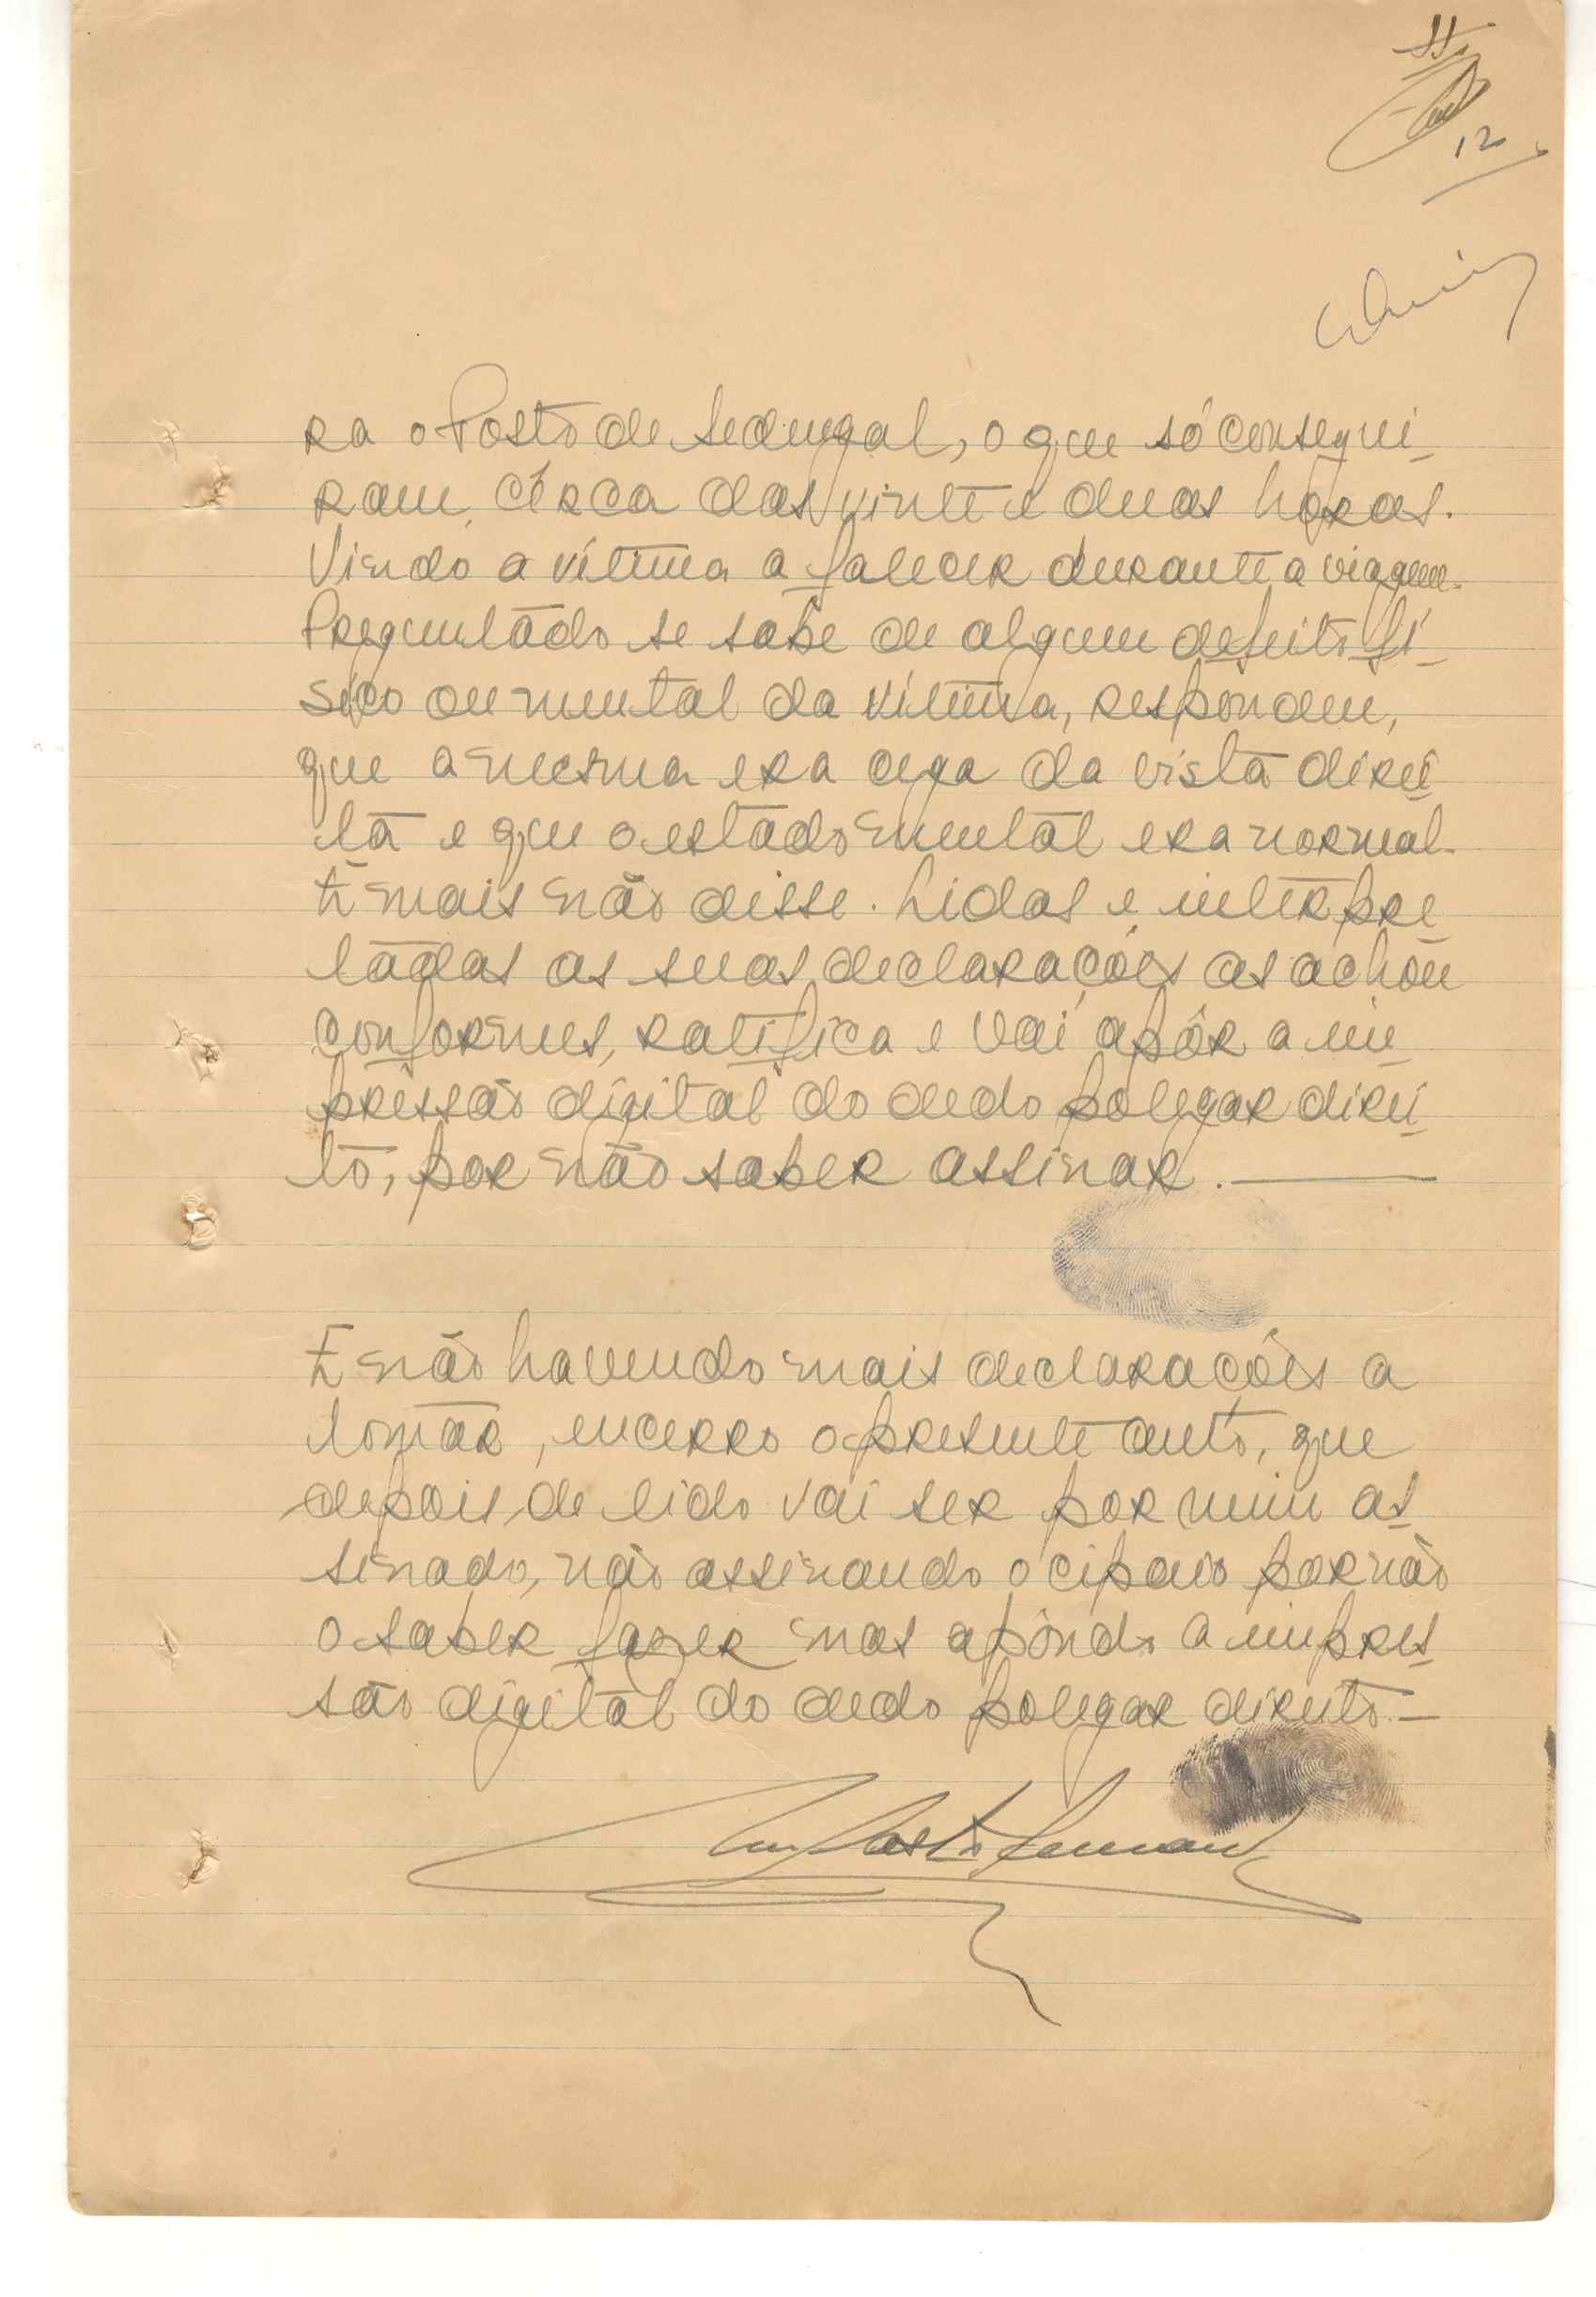 12
ra o Posto de Sedengal, o que só consegui-
ram, cêrca das vinte e duas horas.
Viendo a vítima a falecer durante a viagem.
Preguntado se sabe de algum defeito fí-
sico ou mental da vítima, respondeu,
que a mesma era cega da vista direi-
ta e que o estado mental era normal.
E mais não disse. Lidas e interpre-
tadas as suas declarações as achou
conformes, ratifica e vai apôr a im-
pressão digital do dedo polegar direi-
to, por não saber assinar.
E não havendo mais declarações a
tomar, encerro o presente auto, que
depois de lido vai ser por mim as-
sinado, não assinando o cipaio por não
o saber fazer mas apôndo a impres-
são digital do dedo polegar direito.—